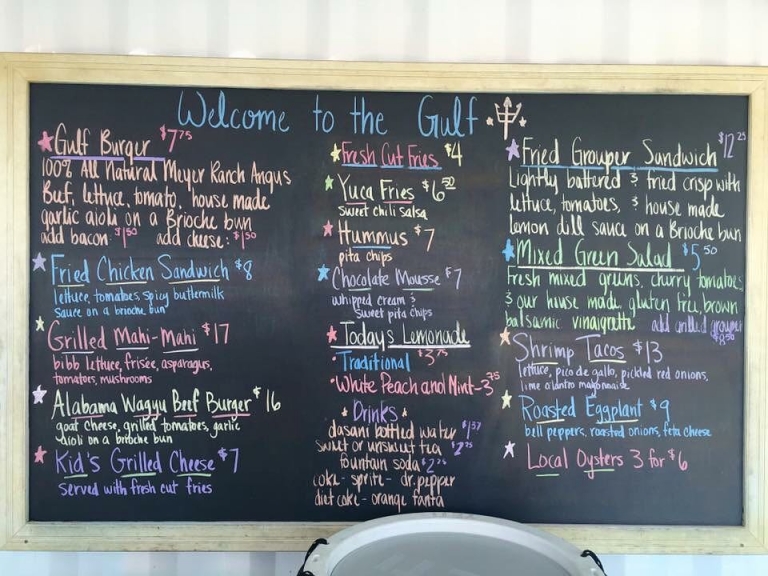 Welcome to the Gulf
Gulf Burger $7.75
100% All Natural Meyer Ranch Angus
Beef, lettuce, tomato, house made
garlic aioli on a Brioche bun
add bacon $1.50 add cheese: $1.50
Fried Chicken Sandwich $8
lettuce, tomatoes, spicy buttermilk
sauce on a brioche bun
Grilled Mahi-Mahi $17
bibb lettuce, frisée, asparagus,
tomatoes, mushrooms
Alabama Wagyu Beef Burger $16
goat cheese, grilled tomatoes, garlic
aioli on a brioche bun
Kid's Grilled Cheese $7
served with fresh cut fries
Fresh Cut Fries $4
Yuca Fries $6.50
sweet chili salsa
Hummus $7
pita chips
Chocolate Mousse $7
whipped cream &
sweet pita chips
Todays Lemonade
Traditional $3.75
White Peach and Mint-3.75
Drinks
dasani bottled water $1.57
sweet or unsweet tea $2.75
fountain soda $2.76
coke - sprite - dr. pepper
diet coke - orange fanta
Fried Grouper Sandwich $12.25
Lightly battered & fried crisp with
lettuce, tomatoes, & house made
lemon dill sauce on a Brioche bun
Mixed Green Salad $5.50
fresh mixed greens, churry tomatoes
& our house made gluten free, brown
balsamic vinaigrette add grilled grouper
$8.50
Shrimp Tacos $13
lettuce, pico de gallo, pickled red onions,
lime cilantro mayonnaise
Roasted Eggplant $9
bell peppers, roasted onions, feta cheese
Local Oysters 3 for $6